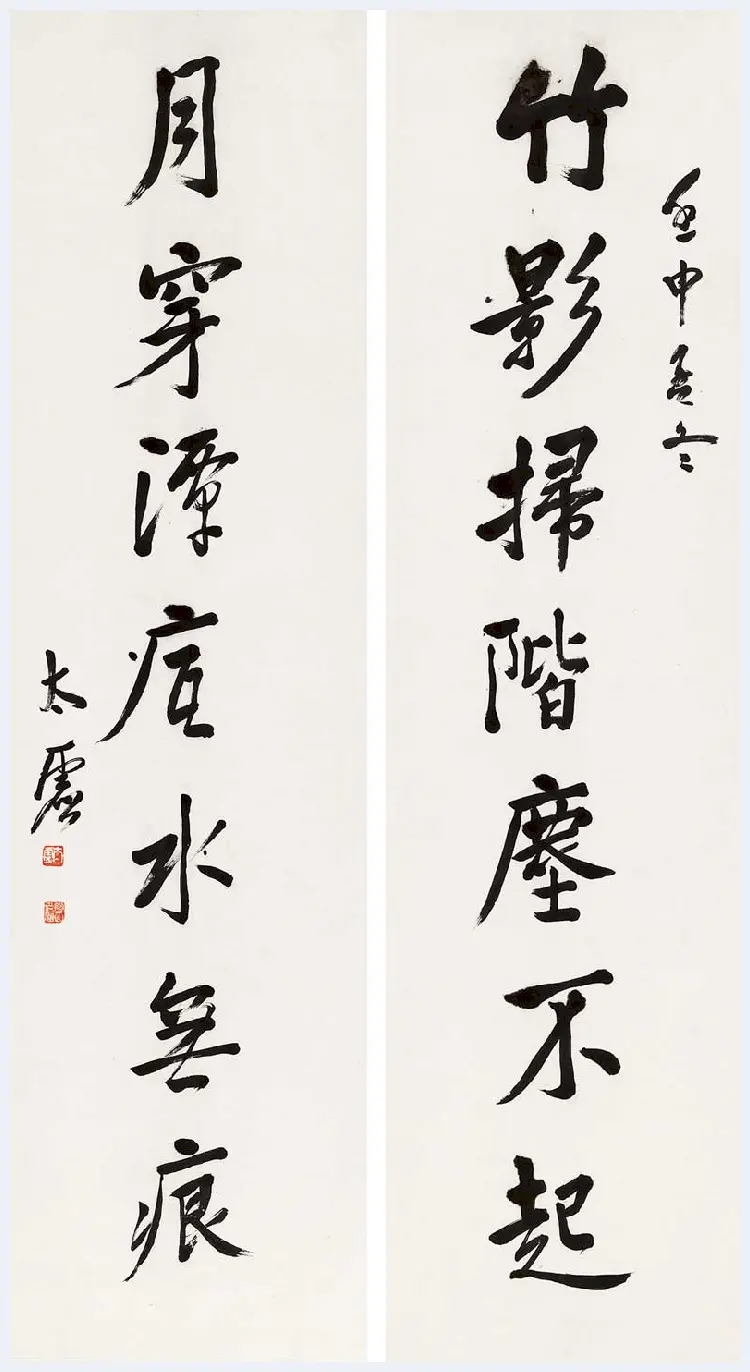 竹影掃階塵不起
壬申孟冬
月穿潭底水無痕
太虛